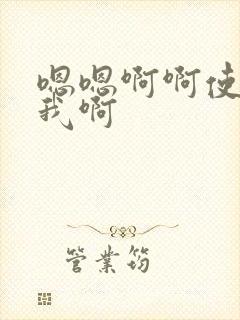 嗯嗯啊啊使
我啊
管業筠